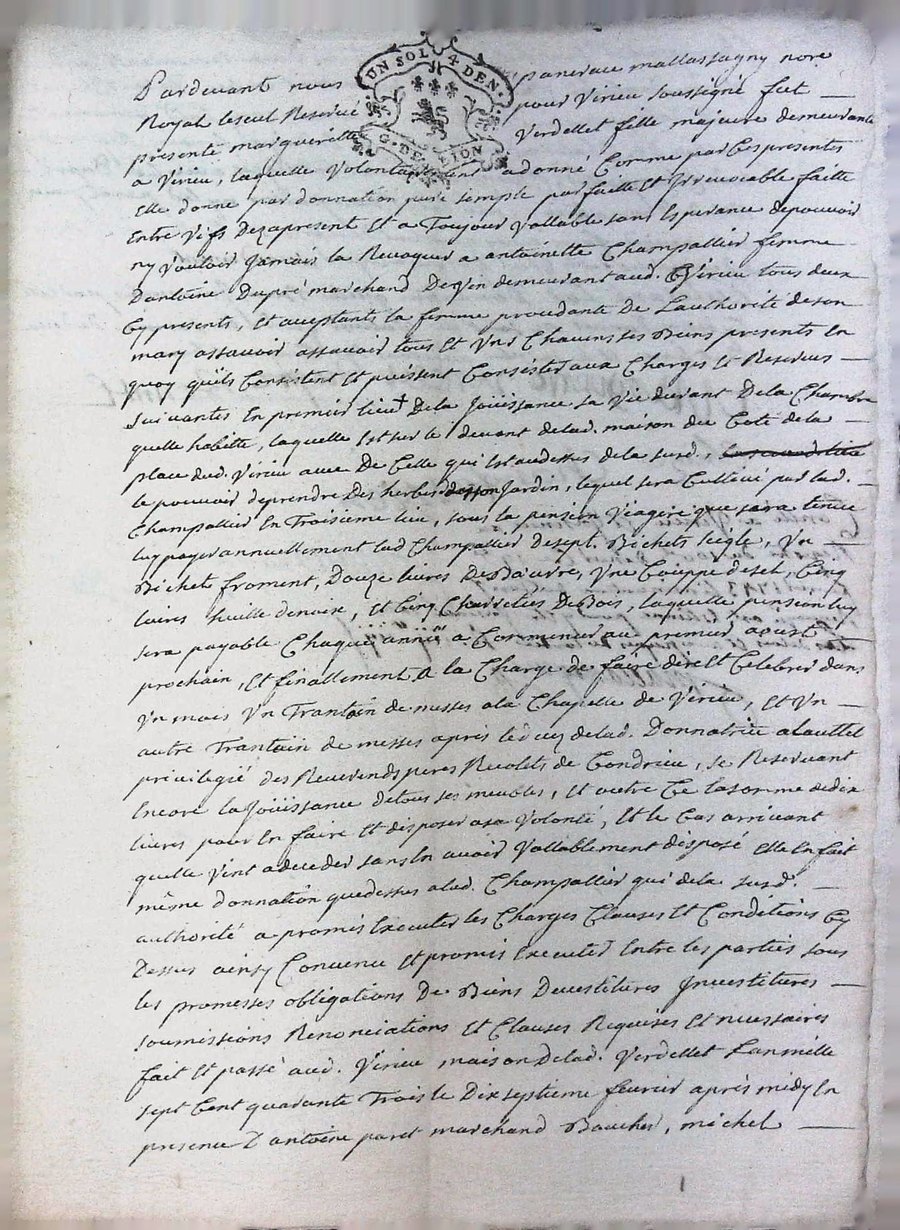 UN SOL 4 DEN.
G. DE LION
Pardevant nous pancrace mallassagny nore
Royal le seul Reservé pour Virieu soussigné fut
presente margueritte Verdellet fille majeure demeurante
a Virieu, laquelle Volontairement a donné Comme par Ces presentes
Elle donne par donnation pure simple parfaitte Et Irrevocable faitte
Entre Vifs Dezapresent Et a Toujour Vallable sans Esperance depouvoir
ny Vouloir Jamais la Revoquer a antoinette Champallier femme
Dantoine Dupré marchand DeVin demeurant aud. Virieu tous deux
Cy presents, Et acceptants la femme procedante De Lauthorité deson
mary assavoir assavoir tous Et Vns Chacuns ses Biens presents En
quoy qu'ils Consistent Et puissent Consister aux Charges Et Reserves
suivantes En premier lieu + De la Joüissance sa Vie durant De la Chambre
quelle habitte, laquelle Est sur le devant delad. maison du Coté de la
place dud. Virieu avec De Celle qui Est audessus de la susd.,
le pouvoir deprendre Des herbes Jardin, lequel sera Cultivé par lad.
Champallier En Troisieme lieu, sous la pension Viagere que sera tenue
luy payer annuellement lad Champallier De sept. Bichets seigle, Vn
Bichet froment, Douze livres De Bœurre, Vne Couppe desel, Cinq
livres huille denoix, Et Cinq Charretées De Bois, laquelle pension luy
sera payable Chaque année a Commencer au premier aoust
prochain, Et finallement A la Charge de faire dire Et Celebrer dans
Vn mois Vn Trantain de messes ala Chapelle de Virieu, Et Vn
autre Trantain de messes après le decez delad. Donnatrice alauttel
privilegié des Reverends peres Recolets de Condrieu, se Reservant
Encore la Joüissance detous ses meubles, Et outre Ce la somme dedix
livres pour En faire Et disposer asa Volonté, Et le Cas arrivant
quelle Vint adeceder sans En avoir Vallablement disposé Elle En fait
même donnation quedessus alad. Champallier qui dela susd.
authorité a promis Executer les Charges Clauses Et Conditions Cy
Dessus ainsy Convenu Et promis Executer Entre les parties sous
les promesses obligations De Biens Devestitures Investitures
soumissions Renonciations Et Clauses Requises Et necessaires
fait Et passé aud. Virieu maison Delad. Verdellet Lan mille
sept Cent quarante Trois le Dixseptieme fevrier après midy En
presence D'antoine paret marchand Boucher, michel